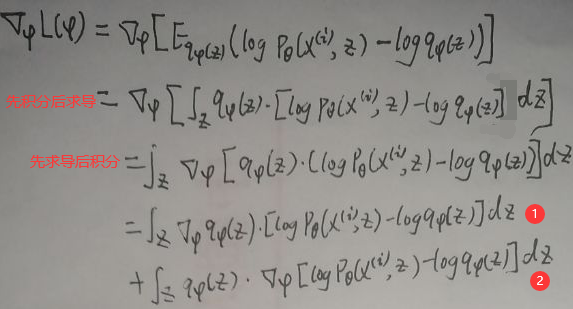 ∇φL(φ) = ∇φ[Eqφ(z)(log Pθ(x⁽ⁱ⁾, z) − log qφ(z))]
先积分后求导 = ∇φ[∫z qφ(z)·[log Pθ(x⁽ⁱ⁾, z) − log qφ(z)] dz]
先求导后积分 = ∫z ∇φ[qφ(z)·(log Pθ(x⁽ⁱ⁾, z) − log qφ(z))]dz
= ∫z ∇φ qφ(z)·[log Pθ(x⁽ⁱ⁾, z) − log qφ(z)]dz 1
+ ∫z qφ(z)·∇φ[log Pθ(x⁽ⁱ⁾, z) − log qφ(z)]dz 2